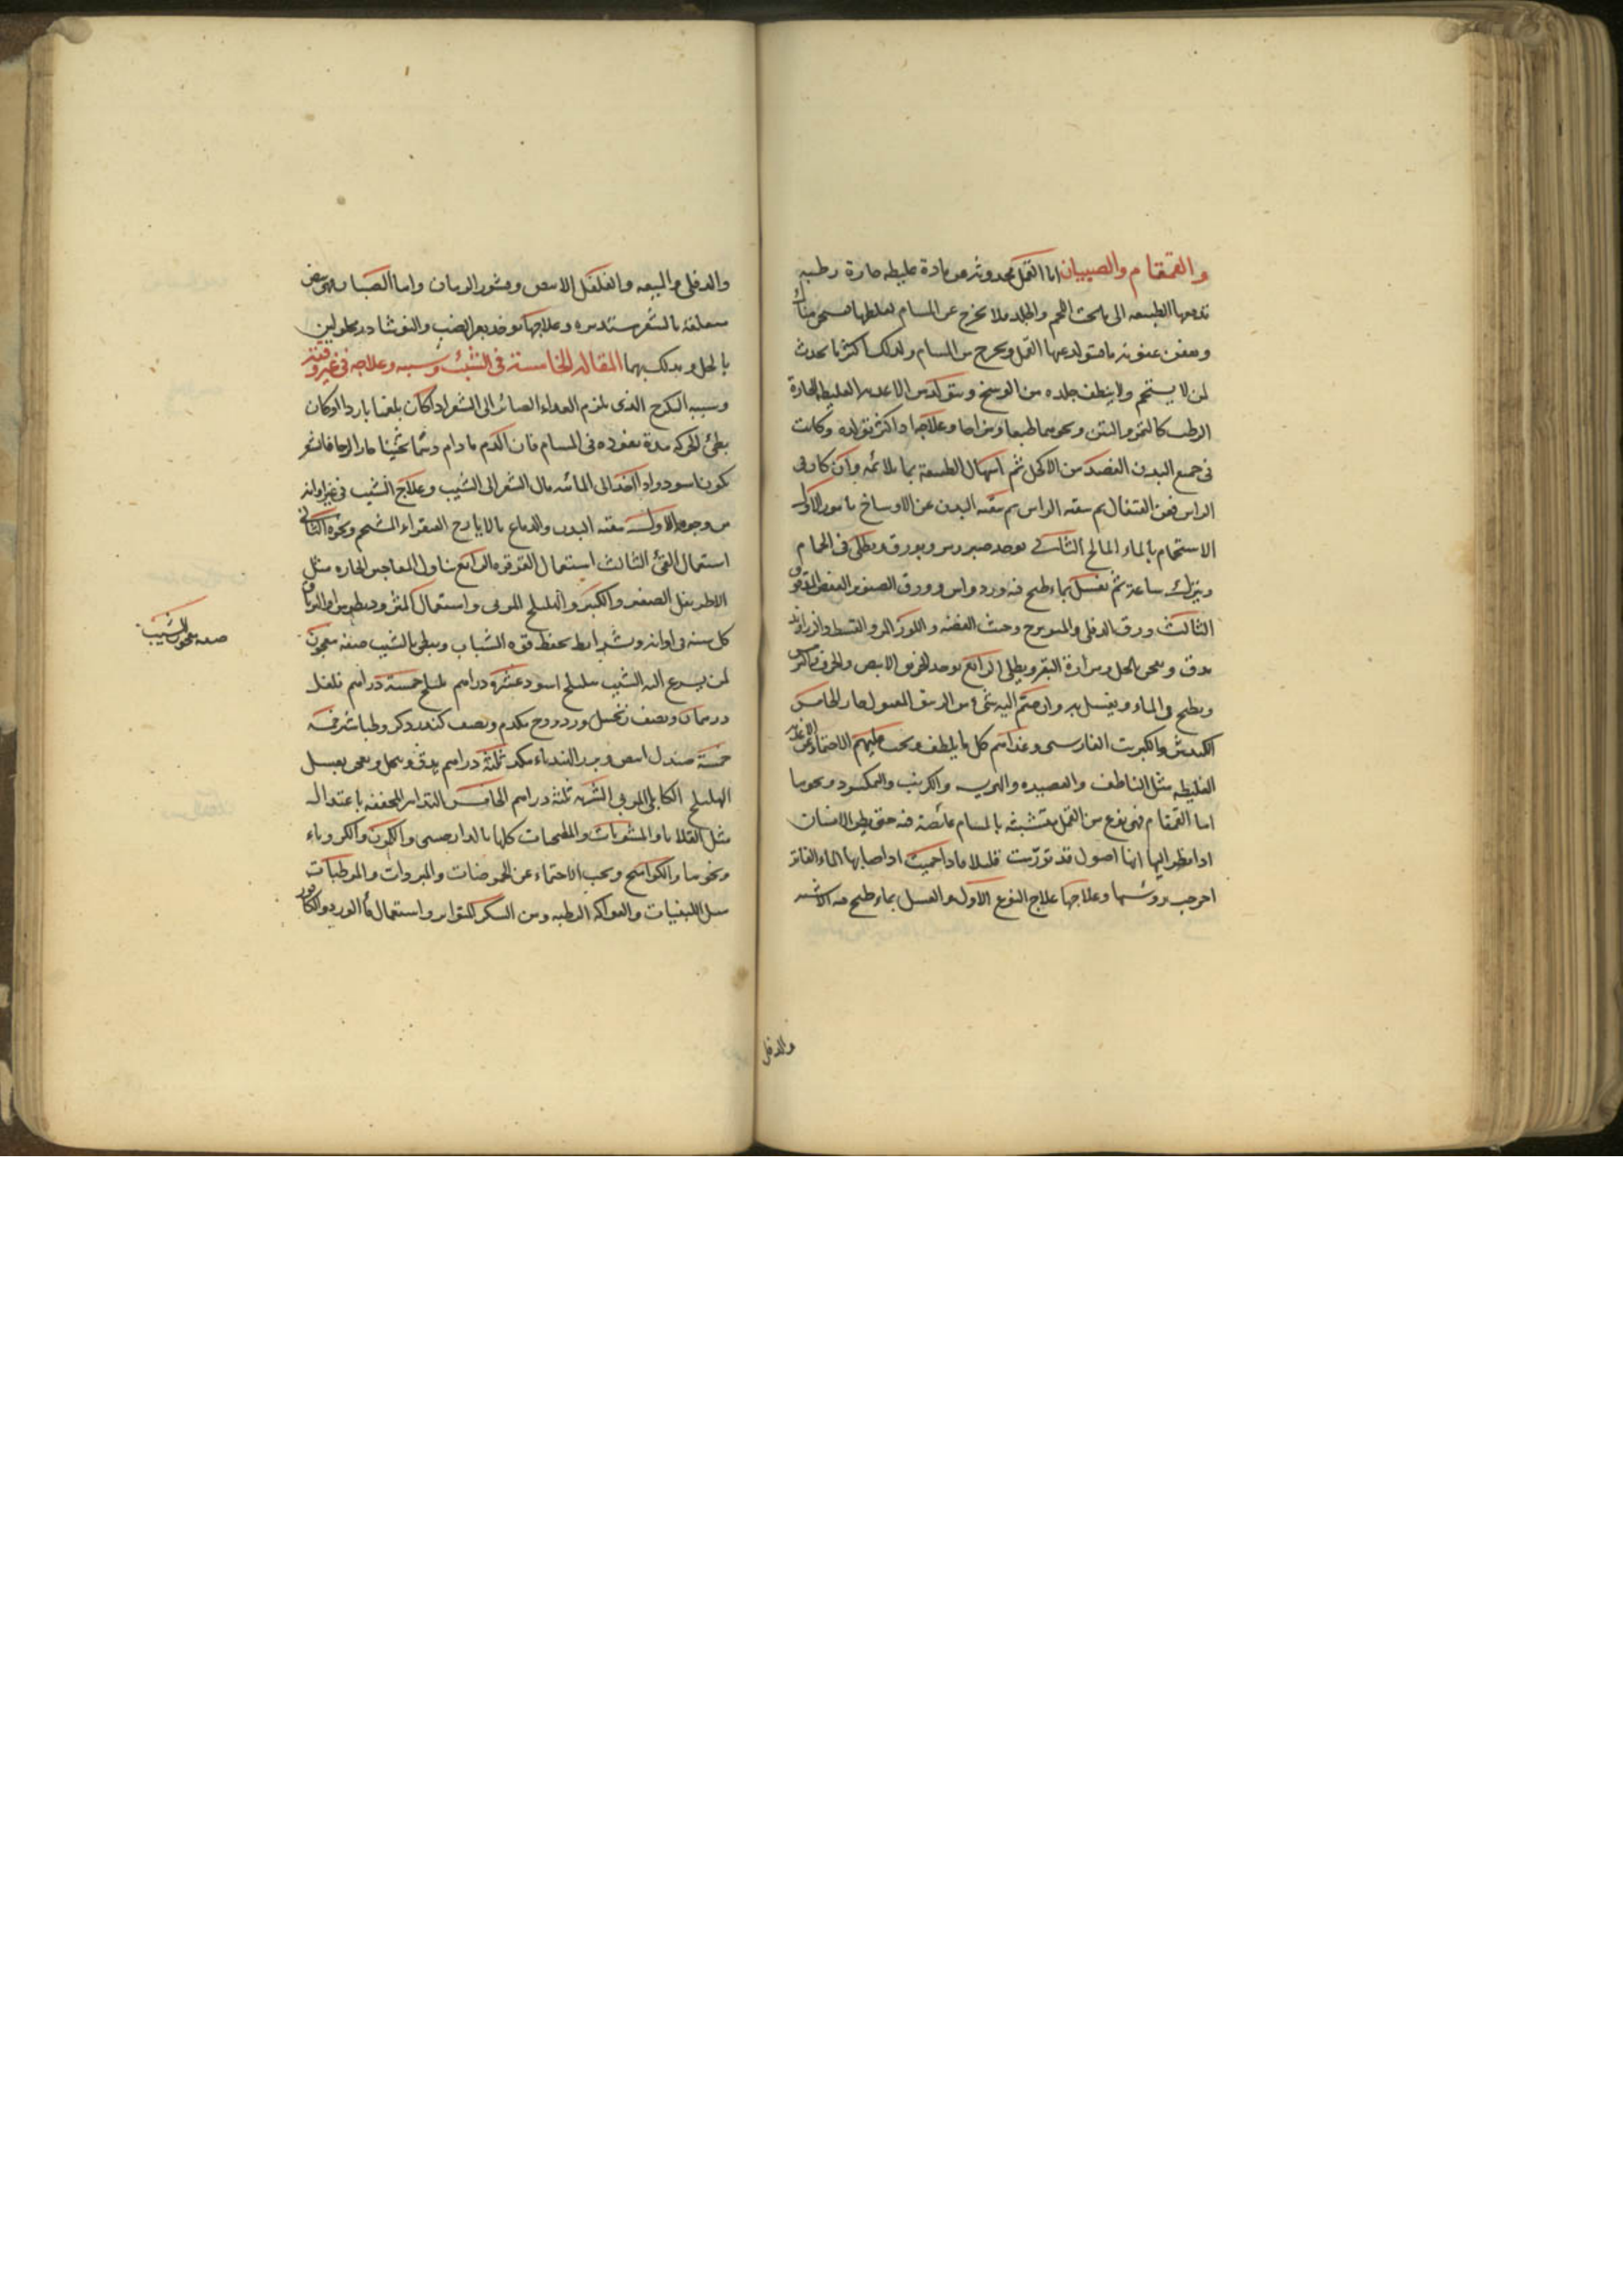 والقمقام والصيبان اما القمل فحدوثه من مادة غليظه حارة رطبه
تدفعها الطبيعه الى تحت اللحم والجلد فلا تخرج عن المسام لغلظها فتسخن هناك
وتعفن عفونه ما فيتولد عنها القمل ويخرج من المسام ولذلك اكثر ما يحدث
لمن لا يستحم ولا ينظف جلده من الوسخ ويتولد من الاغذيه الغليظه الحارة
الرطبه كالتمر والتين ونحوهما طبعا ومزاجا وعلاجه اذا كثر تولده وكانت
فى جميع البدن الفصد من الاكحل ثم اسهال الطبيعة بما يلائمه وان كان فى
الراس فمن القيفال ثم تنقيه الراس ثم تنقيه البدن عن الاوساخ بامور الاول
الاستحمام بالماء المالح الثانى يوخذ صبر وبورق ويطلى فى الحمام
ويترك ساعة ثم يغسل بماء طبخ فيه ورد واس وورق الصنوبر العفص
الثالث ورق الدفلى والميويزج وخبث الفضه واللوز المر والقسط
يدق ويعجن بالخل ومرارة البقر ويطلى الرابع يوخذ الخربق الابيض
ويطبخ فى الماء ويغسل به وان ضم اليه شى من الزيبق المقتول جاز الخامس
الكندش والكبريت الفارسى وغذاهم كل ما يلطف ويجب عليهم الاحتماء عن الاغذيه
الغليظه مثل الناطف والعصيده والهريسه والكرنب والنمكسود ونحوها
اما القمقام فهى نوع من القمل متشبثه بالمسام غائصة فيه حتى يظن الانسان
اذا نظر اليها انها اصول قد تورمت قليلا فاذا حميت اذا اصابها الماء الفاتر
اخرجت روسها وعلاجها علاج النوع الاول والغسل بماء طبخ فيه
والدفلى
والدفلى والميعه والفلفل الابيض وقشور الرمان واما الصيبان فهى بيض
متعلقة بالشعر مستديره وعلاجها يوخذ بعر الضب والنوشادر محلولين
بالخل ويدلك بهما المقاله الخامسة فى الشيب وسببه وعلاجه فى غير وقته
وسببه التكرج الذى يلزم الغذاء الصائر الى الشعر اذا كان بلغما باردا او كان
بطئ الحركه مدة نفوذه فى المسام فان الدم ما دام دسما ثخينا فان شعره
يكون اسود واذا اخذ الى المائيه مال الشعر الى الشيب وعلاج الشيب فى غير اوانه
من وجوه الاول تنقيه البدن والدماغ بالايارج الفيقراء المشحم ونحوه الثانى
استعمال القئ الثالث استعمال الغرغره الرابع تناول المعاجين الحاره مثل
الاطريفل الصغير والكبير والهليلج المربى واستعمال المثروديطوس والترياق
كل سنه فى اوانه وشرايط تحفظ قوه الشباب ويبطى بالشيب صفه معجون
لمن يسرع اليه الشيب هليلج اسود عشره دراهم بليلج خمسة دراهم فلفل
درهمان ونصف زنجبيل ورد درهم ونصف كندر ذكر وطباشير خمسه
خمسة صندل ابيض وبزر الهندباء ثلثة دراهم يدق وينخل ويعجن بعسل
الهليلج الكابلى المربى الشربه ثلثة دراهم الخامس التدابير المجففه باعتدال
مثل القلايا والمشويات والمطجنات كلها بالدارصينى والكمون والكروياء
ونحوها والكوامخ ويجب الاحتماء عن الحموضات والمبردات والمرطبات
مثل اللبنيات والفواكه الرطبه ومن السكر المتواتر واستعمال ماء الورد والكافور
صفه معجون للشيب